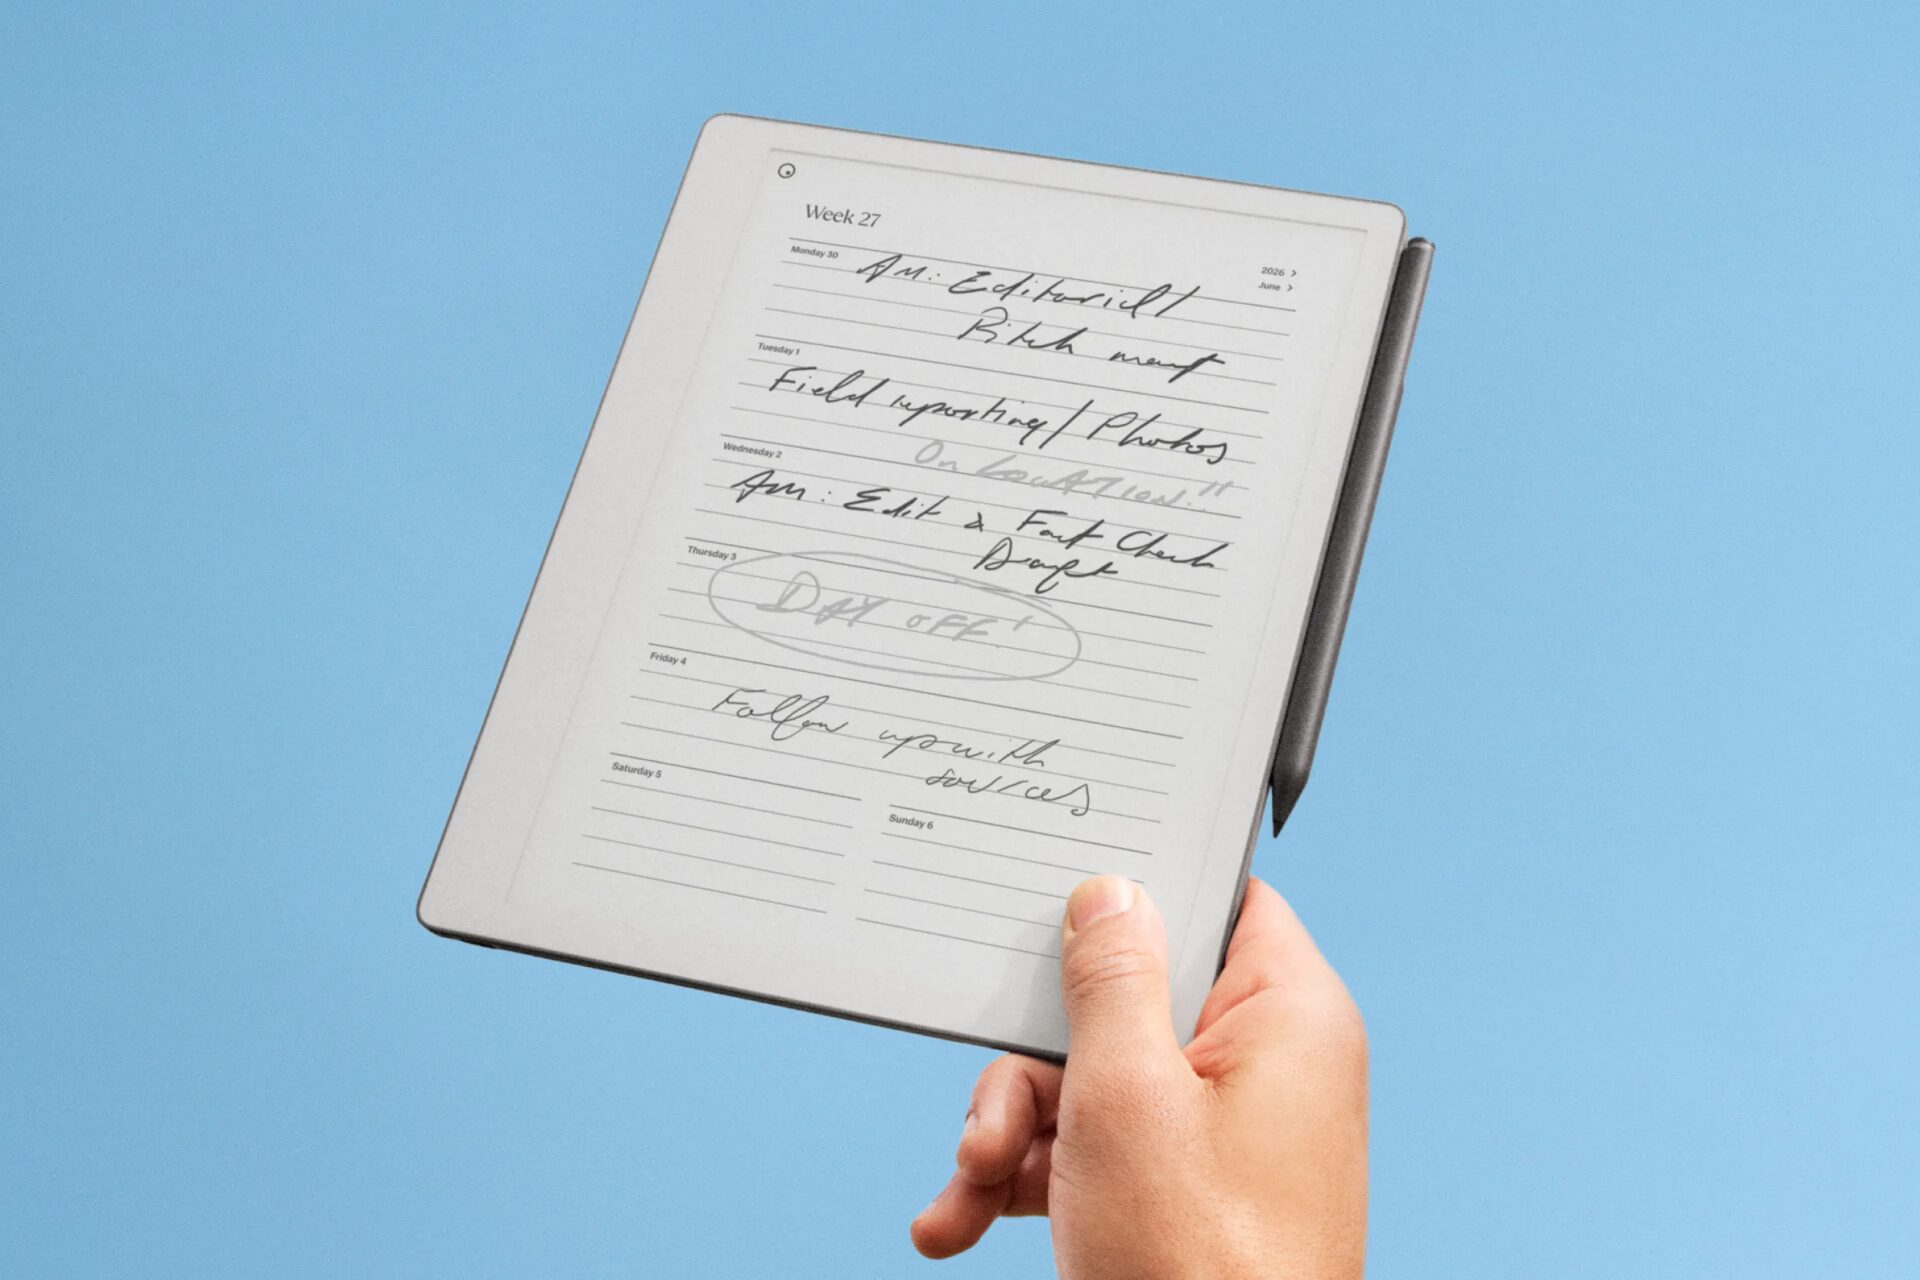 Week 27
2026 >
June >
Monday 30
AM: Editorial/
Pitch
Tuesday 1
Field reporting/Photos
On LOCATION!!
Wednesday 2
AM: Edit & Fact Check
Draft
Thursday 3
DAY OFF!
Friday 4
Follow up with
sources
Saturday 5
Sunday 6